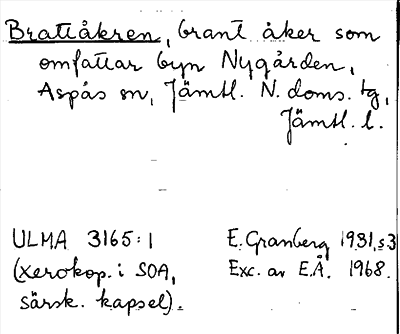 Brattåkren, brant åker som
omfattar byn Nygården,
Aspås sn, Jämtl. N. doms. tg,
Jämtl. l.
ULMA 3165:1 E. Granberg 1931, s3
(xerokop. i SOA, Exc. av E.Å. 1968.
särsk. kapsel).